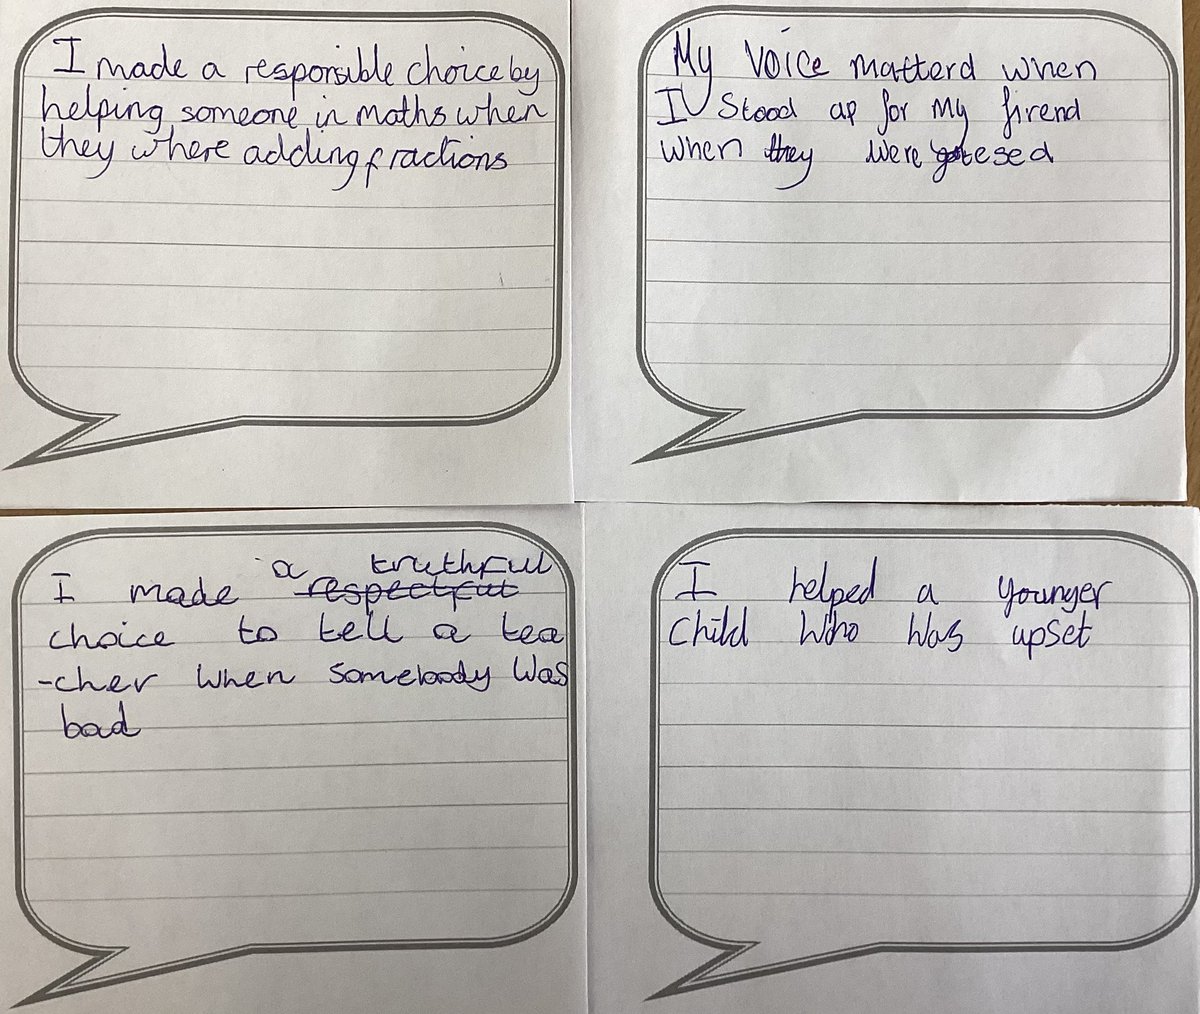 I made a responsible choice by
helping someone in maths when
they where adding fractions
My voice matterd when
I stood up for my firend
when they were tesed
I made a truthful
respectful
choice to tell a tea
-cher when somebody was
bad
I helped a younger
child who was upset